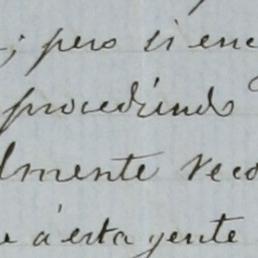 ; pero si enc
procediendo
lmente reco
e á esta gente